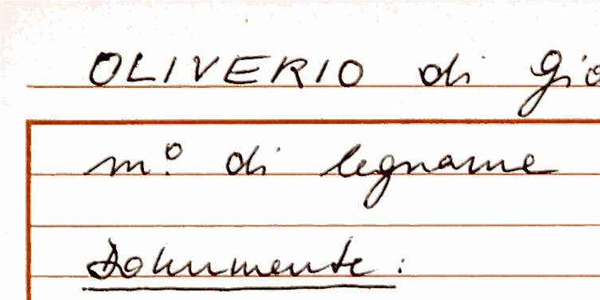 OLIVERIO di Gio
m.º di legname
Dokumente: